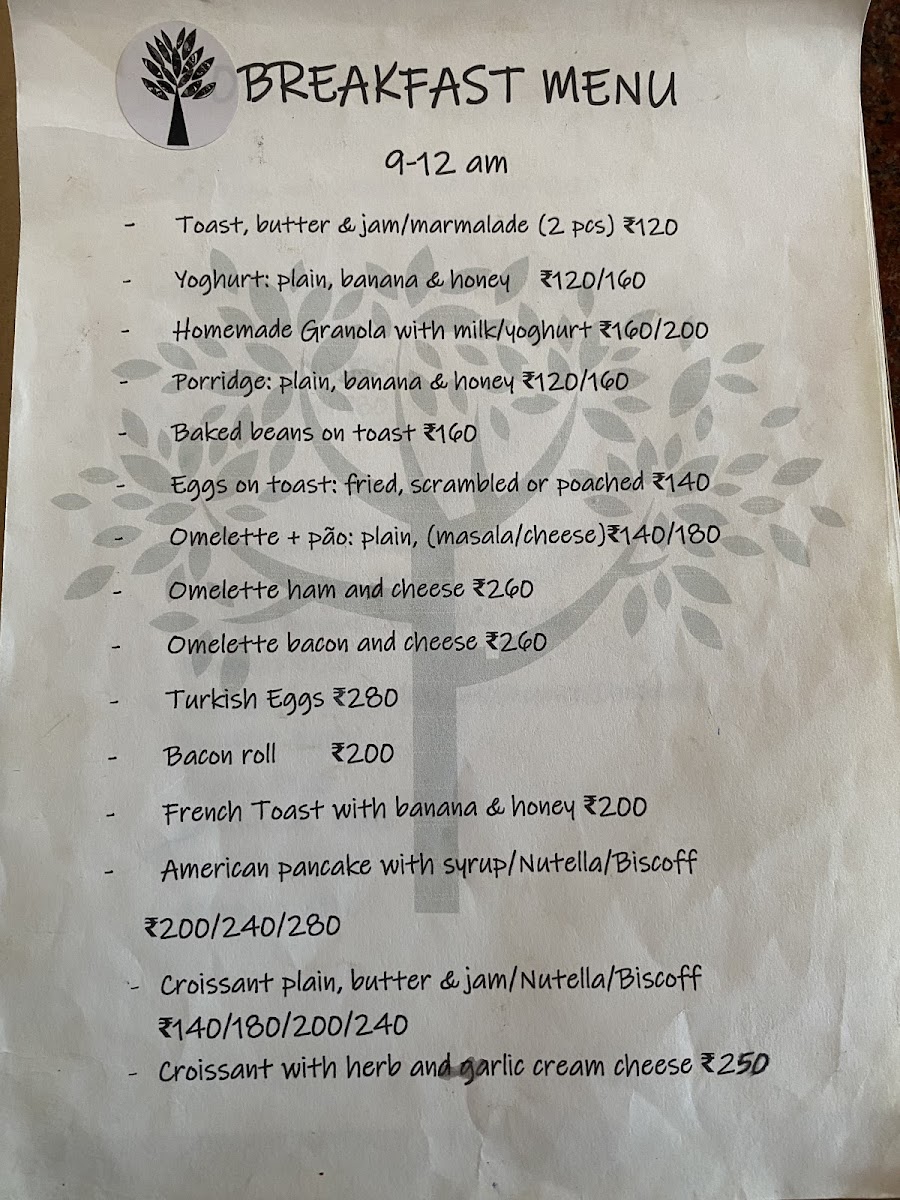 BREAKFAST MENU
9-12 am
- Toast, butter & jam/marmalade (2 pcs) ₹120
- Yoghurt: plain, banana & honey ₹120/160
- Homemade Granola with milk/yoghurt ₹160/200
- Porridge: plain, banana & honey ₹120/160
- Baked beans on toast ₹160
- Eggs on toast: fried, scrambled or poached ₹140
- Omelette + pão: plain, (masala/cheese)₹140/180
- Omelette ham and cheese ₹260
- Omelette bacon and cheese ₹260
- Turkish Eggs ₹280
- Bacon roll ₹200
- French Toast with banana & honey ₹200
- American pancake with syrup/Nutella/Biscoff
₹200/240/280
- Croissant plain, butter & jam/Nutella/Biscoff
₹140/180/200/240
- Croissant with herb and garlic cream cheese ₹250